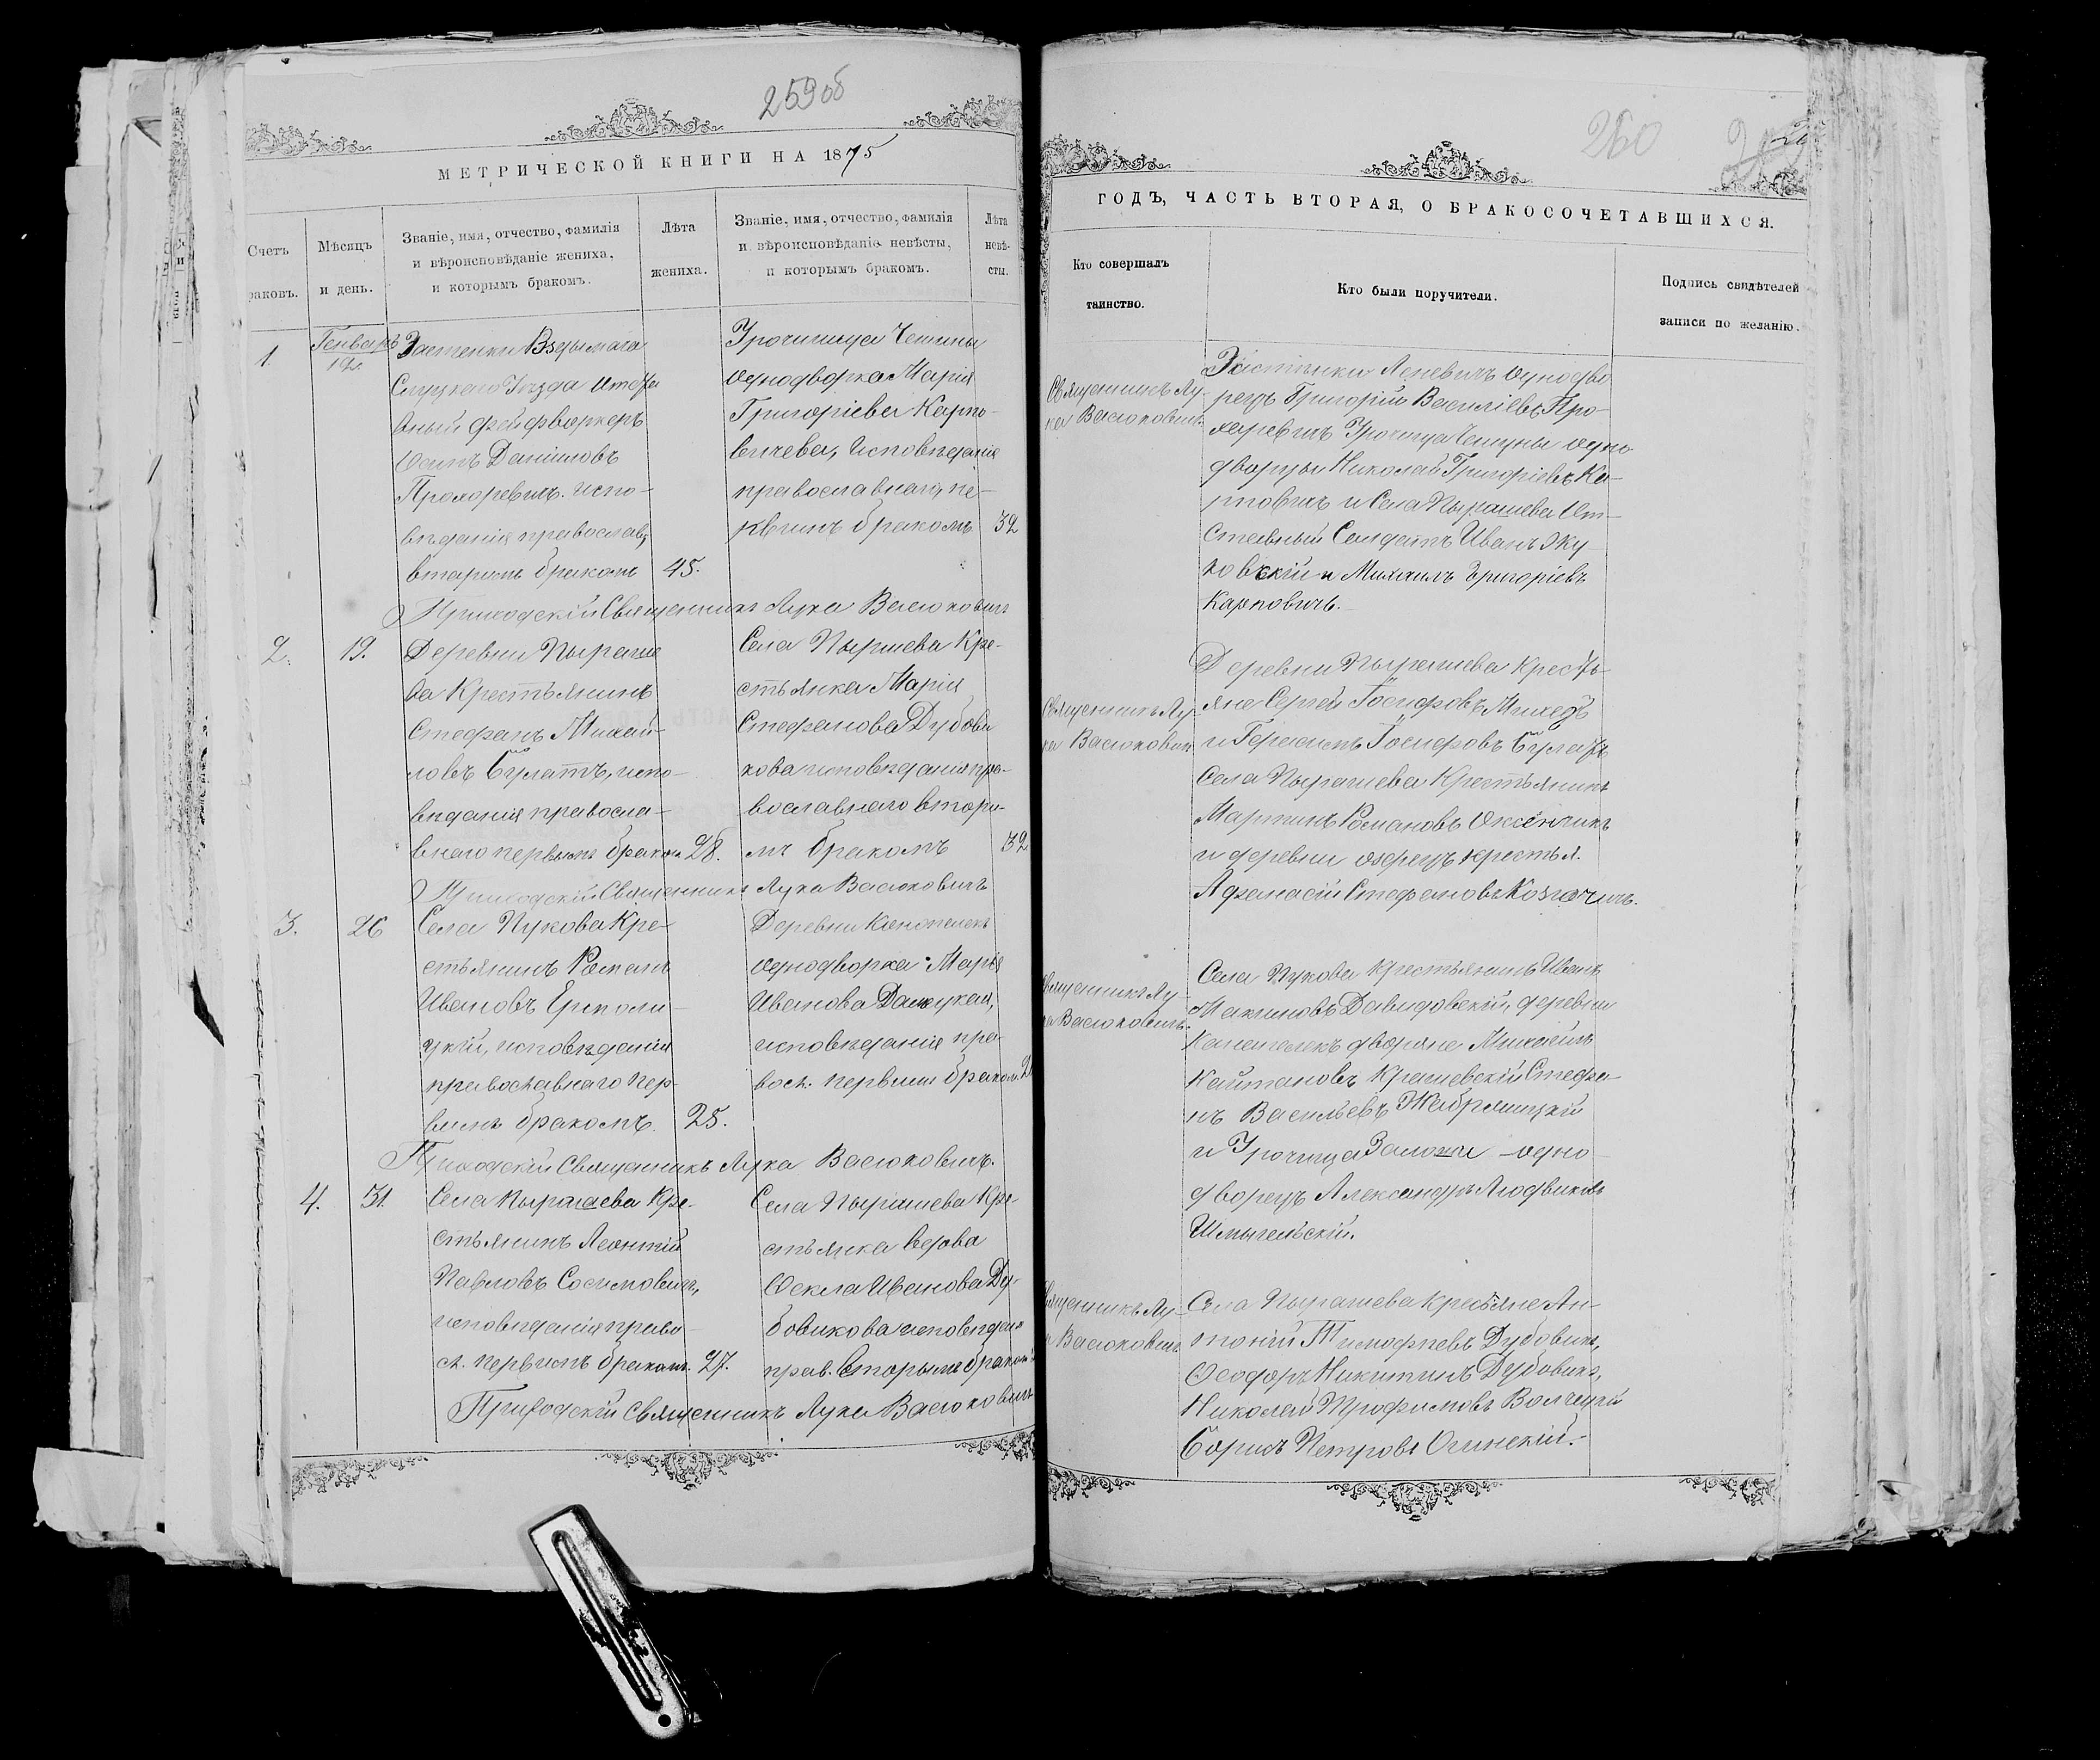 259об
МЕТРИЧЕСКОЙ КНИГИ НА 1875
Счетъ
раковъ.
Мѣсяцъ
и день.
Званіе, имя, отчество, фамилія
и вѣроисповѣданіе жениха,
и которымъ бракомъ.
Лѣта
жениха.
Званіе, имя, отчество, фамилія
и вѣроисповѣданіе невѣсты,
и которымъ бракомъ.
Лѣта
невѣ-
сты.
1.
Генварь
12.
Застенки
Слуцкаго Уѣзда отста
вный фейфваркеръ
Осипъ Даніиловъ
Прохоревичъ. испо-
вѣданія православ,
вторымъ бракомъ
45.
Урочища Чешуны
однодворка Марія
Григоріева Карпо-
вичева, исповѣданія
православнаго, пе-
рвымъ бракомъ
32
Приходскій Священникъ Лука Васюковичъ
2.
19.
Деревни Пыраше
ва Крестьянинъ
Стефанъ Михай-
ловъ Булатъ, испо-
вѣданія правосла-
внаго первымъ бракомъ
28.
Села Пырашева Кре-
стьянка Марія
Стефанова Дубови
кова исповѣданія пра-
вославнаго вторы-
мъ бракомъ
32
Приходскій Священникъ Лука Васюковичъ
3.
26
Села Пукова Кре-
стьянинъ Романъ
Ивановъ Ермоли-
цкій, исповѣданія
православнаго пер-
вымъ бракомъ.
25.
Деревни
однодворка Марья
Иванова
исповѣданія пра-
восл. первымъ бракомъ
Приходскій Священникъ Лука Васюковичъ.
4.
31.
Села Пырашева Кре-
стьянинъ Леонтій
Павловъ Сосимовичъ,
исповѣданія право-
сл. первымъ бракомъ.
27.
Села Пырашева Кре-
стьянка вдова
Ѳекла Иванова Ду-
бовикова исповѣдан
прав. вторымъ бракомъ
Приходскій Священникъ Лука Васюковичъ
260
ГОДЪ, ЧАСТЬ ВТОРАЯ, О БРАКОСОЧЕТАВШИХСЯ.
Кто совершалъ
таинство.
Кто были поручители.
Подпись свидѣтелей
записи по желанію.
Священникъ Лу-
ка Васюковичъ.
Застѣнки Леневичъ однодво
рецъ Григорій Василіевъ Про-
харевичъ Урочища Чешуны одно
дворцы Николай Григоріевъ Ка-
рповичъ и Села Пырашева От-
ставный Солдатъ Иванъ Жу-
ковскій и Михаилъ Григоріевъ
Карповичъ.
Священникъ Лу-
ка Васюковичъ
Деревни Пырашева Кресть-
яне Сергей Іосифовъ
и Герасимъ Іосифовъ Булатъ
Села Пырашева Крестьянинъ
Мартинъ Романовъ Оксенчикъ
и деревни крестья.
Афанасій Стефановъ Козачичъ.
Священникъ Лу-
ка Васюковичъ.
Села Пукова Крестьянинъ Иванъ
Макимовъ Давидовскій, деревни
дворяне Михаилъ
Каитановъ Крашевскій Стефа-
нъ Васильевъ
и Урочища одно-
дворецъ Александръ Людвиковъ
Шмыгельскій.
Священникъ Лу-
ка Васюковичъ
Села Пырашева Крестьяне Ан-
тоній Тимофѣевъ Дубовикъ,
Ѳеодоръ Никитинъ Дубовикъ,
Николай Трофимовъ Волчецкій
Борисъ Петровъ Огинскій.